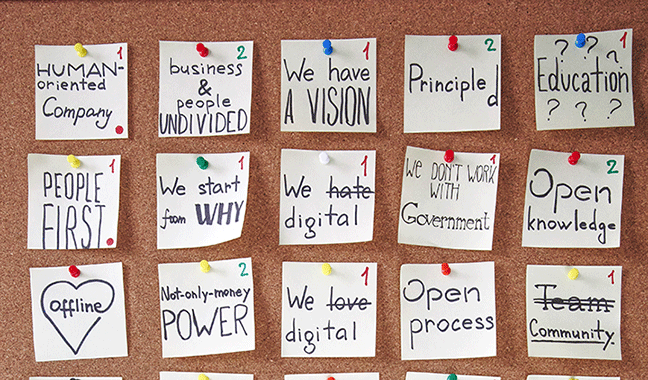 1
HUMAN-
oriented
Company
2
business
&
people
UNDIVIDED
1
We have
A VISION
2
Principle
d
1
? ? ?
Education
? ? ?
1
PEOPLE
FIRST
1
We start
from WHY
1
We hate
digital
1
We DON'T WORK
WITH
Government
2
Open
knowledge
offline
2
Not-only-money
POWER
1
We love
digital
Open
process
1
Team
Community